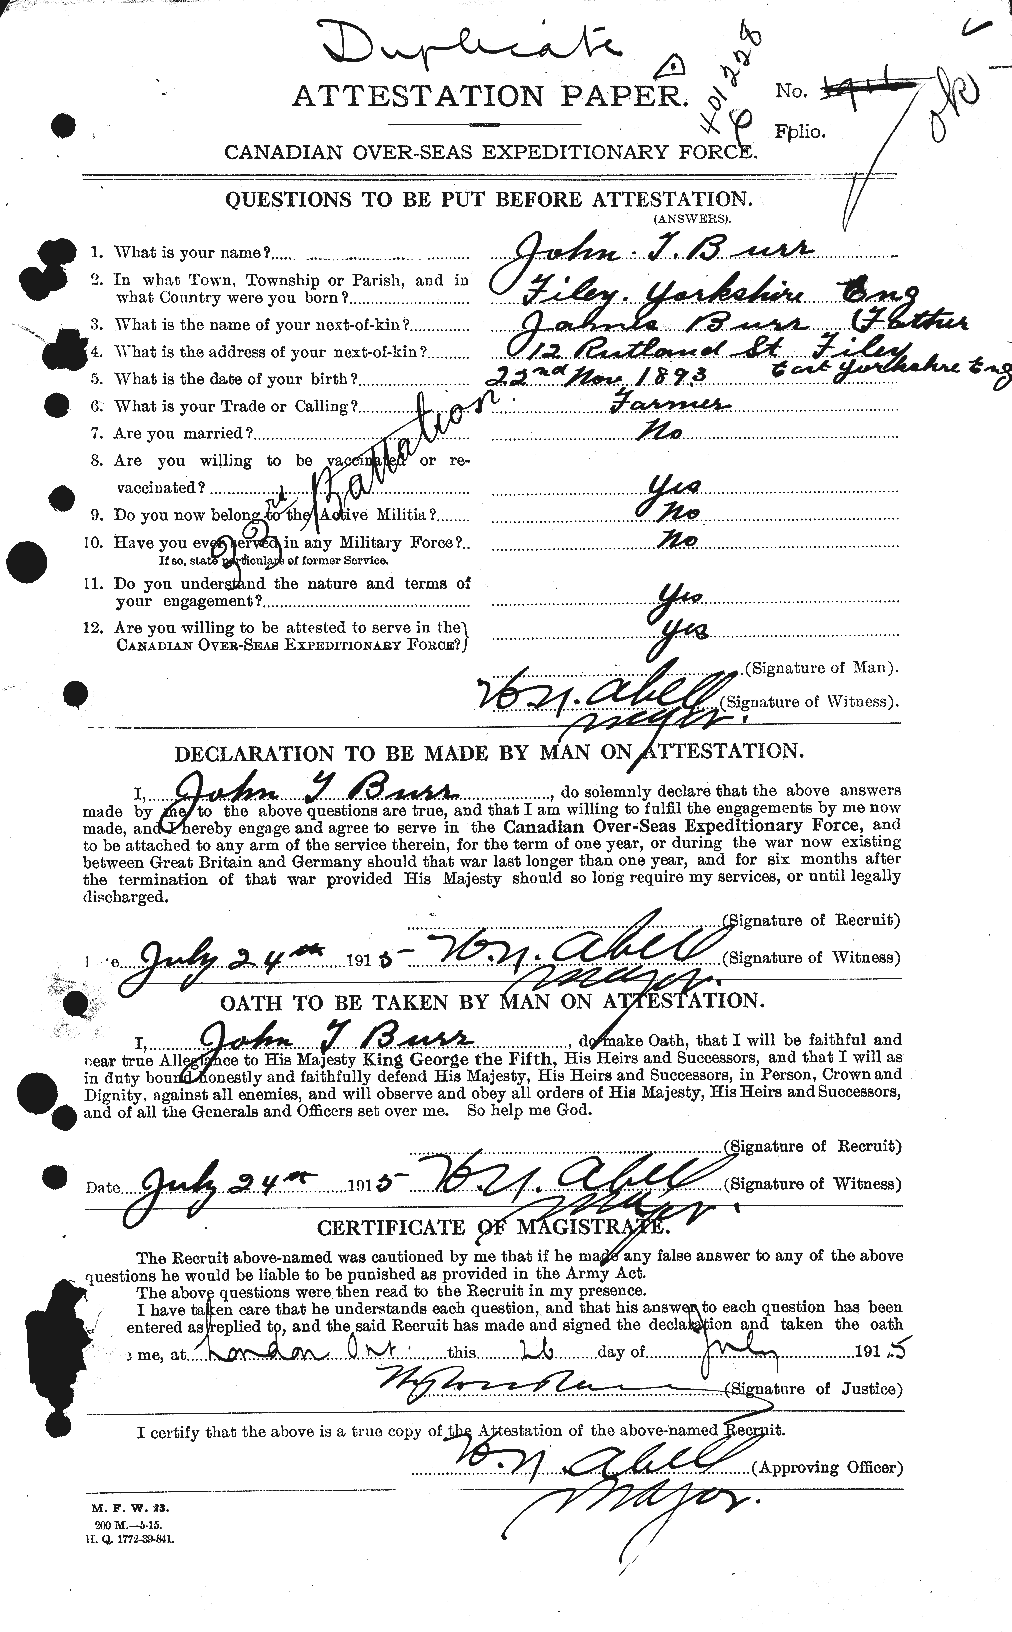 Duplicate
ATTESTATION PAPER.
No.
401228
ok
Folio.
CANADIAN OVER-SEAS EXPEDITIONARY FORCE.
QUESTIONS TO BE PUT BEFORE ATTESTATION.
(ANSWERS).
1. What is your name? John T. Burr
2. In what Town, Township or Parish, and in
what Country were you born? Filey. Yorkshire Eng
3. What is the name of your next-of-kin? James Burr (Father
4. What is the address of your next-of-kin? 12 Rutland St Filey
East Yorkshire Eng
5. What is the date of your birth? 22nd Nov 1893
6. What is your Trade or Calling? Farmer
7. Are you married? No
8. Are you willing to be vaccinated or re-
vaccinated? Yes
9. Do you now belong to the Active Militia? No
10. Have you ever served in any Military Force? No
If so, state particulars of former Service.
11. Do you understand the nature and terms of
your engagement? Yes
12. Are you willing to be attested to serve in the
CANADIAN OVER-SEAS EXPEDITIONARY FORCE? Yes
33rd Battalion
(Signature of Man).
H.N. Abell (Signature of Witness).
Major.
DECLARATION TO BE MADE BY MAN ON ATTESTATION.
I, John T Burr, do solemnly declare that the above answers
made by me to the above questions are true, and that I am willing to fulfil the engagements by me now
made, and I hereby engage and agree to serve in the Canadian Over-Seas Expeditionary Force, and
to be attached to any arm of the service therein, for the term of one year, or during the war now existing
between Great Britain and Germany should that war last longer than one year, and for six months after
the termination of that war provided His Majesty should so long require my services, or until legally
discharged.
(Signature of Recruit)
July 24th 1915 H.N. Abell (Signature of Witness)
Major.
OATH TO BE TAKEN BY MAN ON ATTESTATION.
I, John T Burr, do make Oath, that I will be faithful and
bear true Allegiance to His Majesty King George the Fifth, His Heirs and Successors, and that I will as
in duty bound honestly and faithfully defend His Majesty, His Heirs and Successors, in Person, Crown and
Dignity, against all enemies, and will observe and obey all orders of His Majesty, His Heirs and Successors,
and of all the Generals and Officers set over me. So help me God.
(Signature of Recruit)
Date July 24th 1915 H.N. Abell (Signature of Witness)
Major.
CERTIFICATE OF MAGISTRATE.
The Recruit above-named was cautioned by me that if he made any false answer to any of the above
questions he would be liable to be punished as provided in the Army Act.
The above questions were then read to the Recruit in my presence.
I have taken care that he understands each question, and that his answer to each question has been
entered as replied to, and the said Recruit has made and signed the declaration and taken the oath
e me, at London Ont. this 26 day of July 1915
(Signature of Justice)
I certify that the above is a true copy of the Attestation of the above-named Recruit.
H.N. Abell (Approving Officer)
Major.
M. F. W. 23.
200 M.—5-15.
H. Q. 1772-39-841.